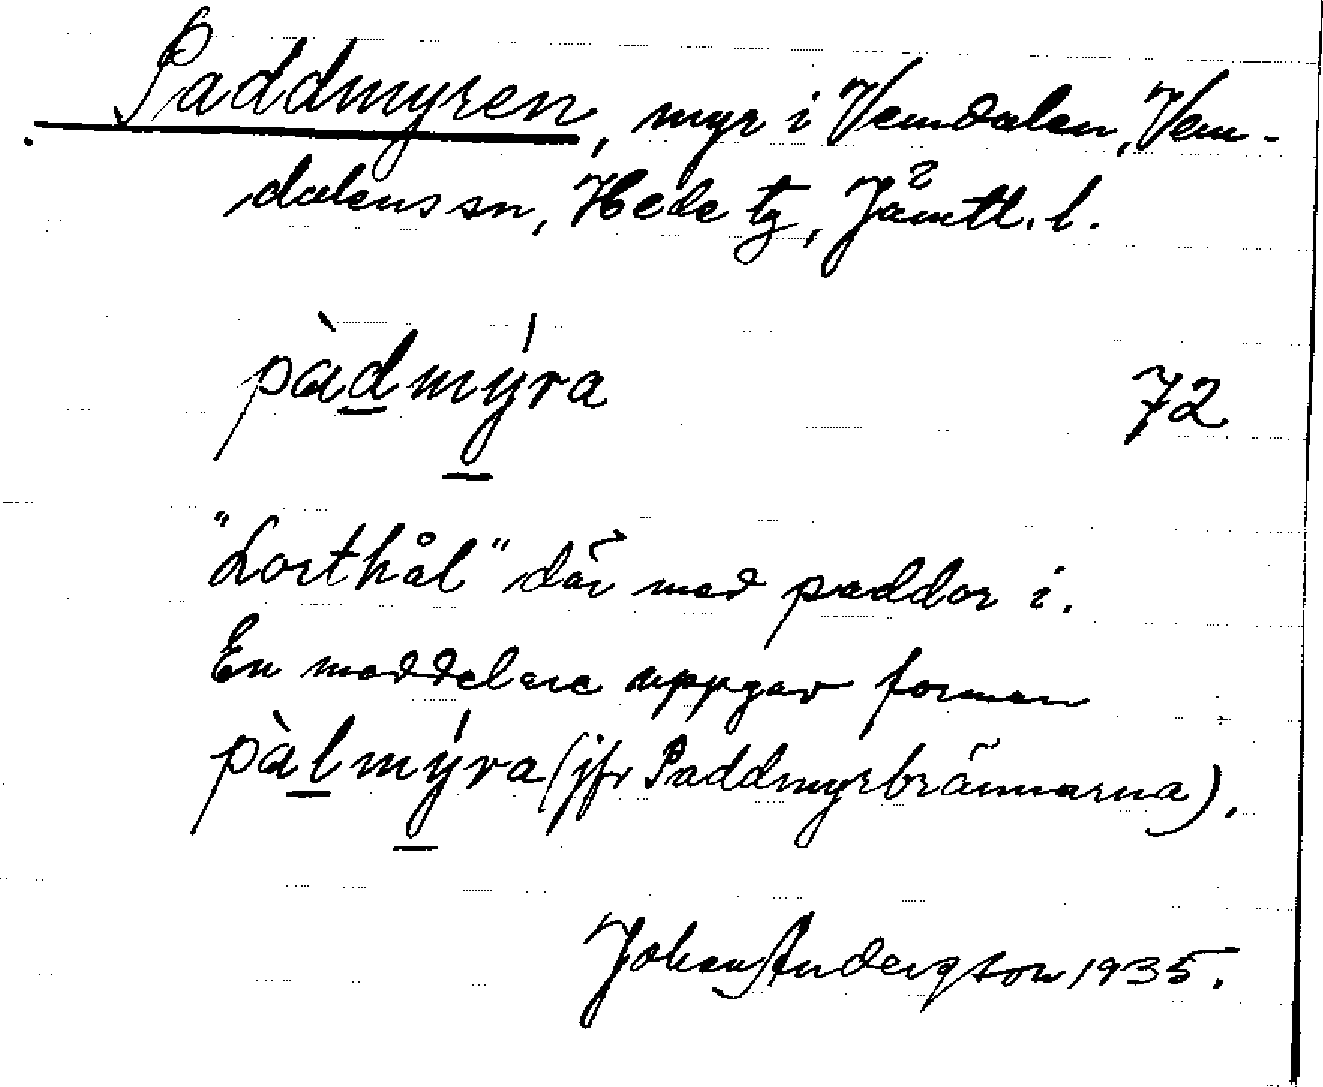 Paddmyren, myr i Vemdalen, Vem-
dalens sn, Hede tg, Jämtl. l.
pàdmýra 72
"Lorthål" där med paddor i.
En meddelare uppgav formen
pàlmýra (jfr Paddmyrbrännarna).
Johan Andersson 1935.